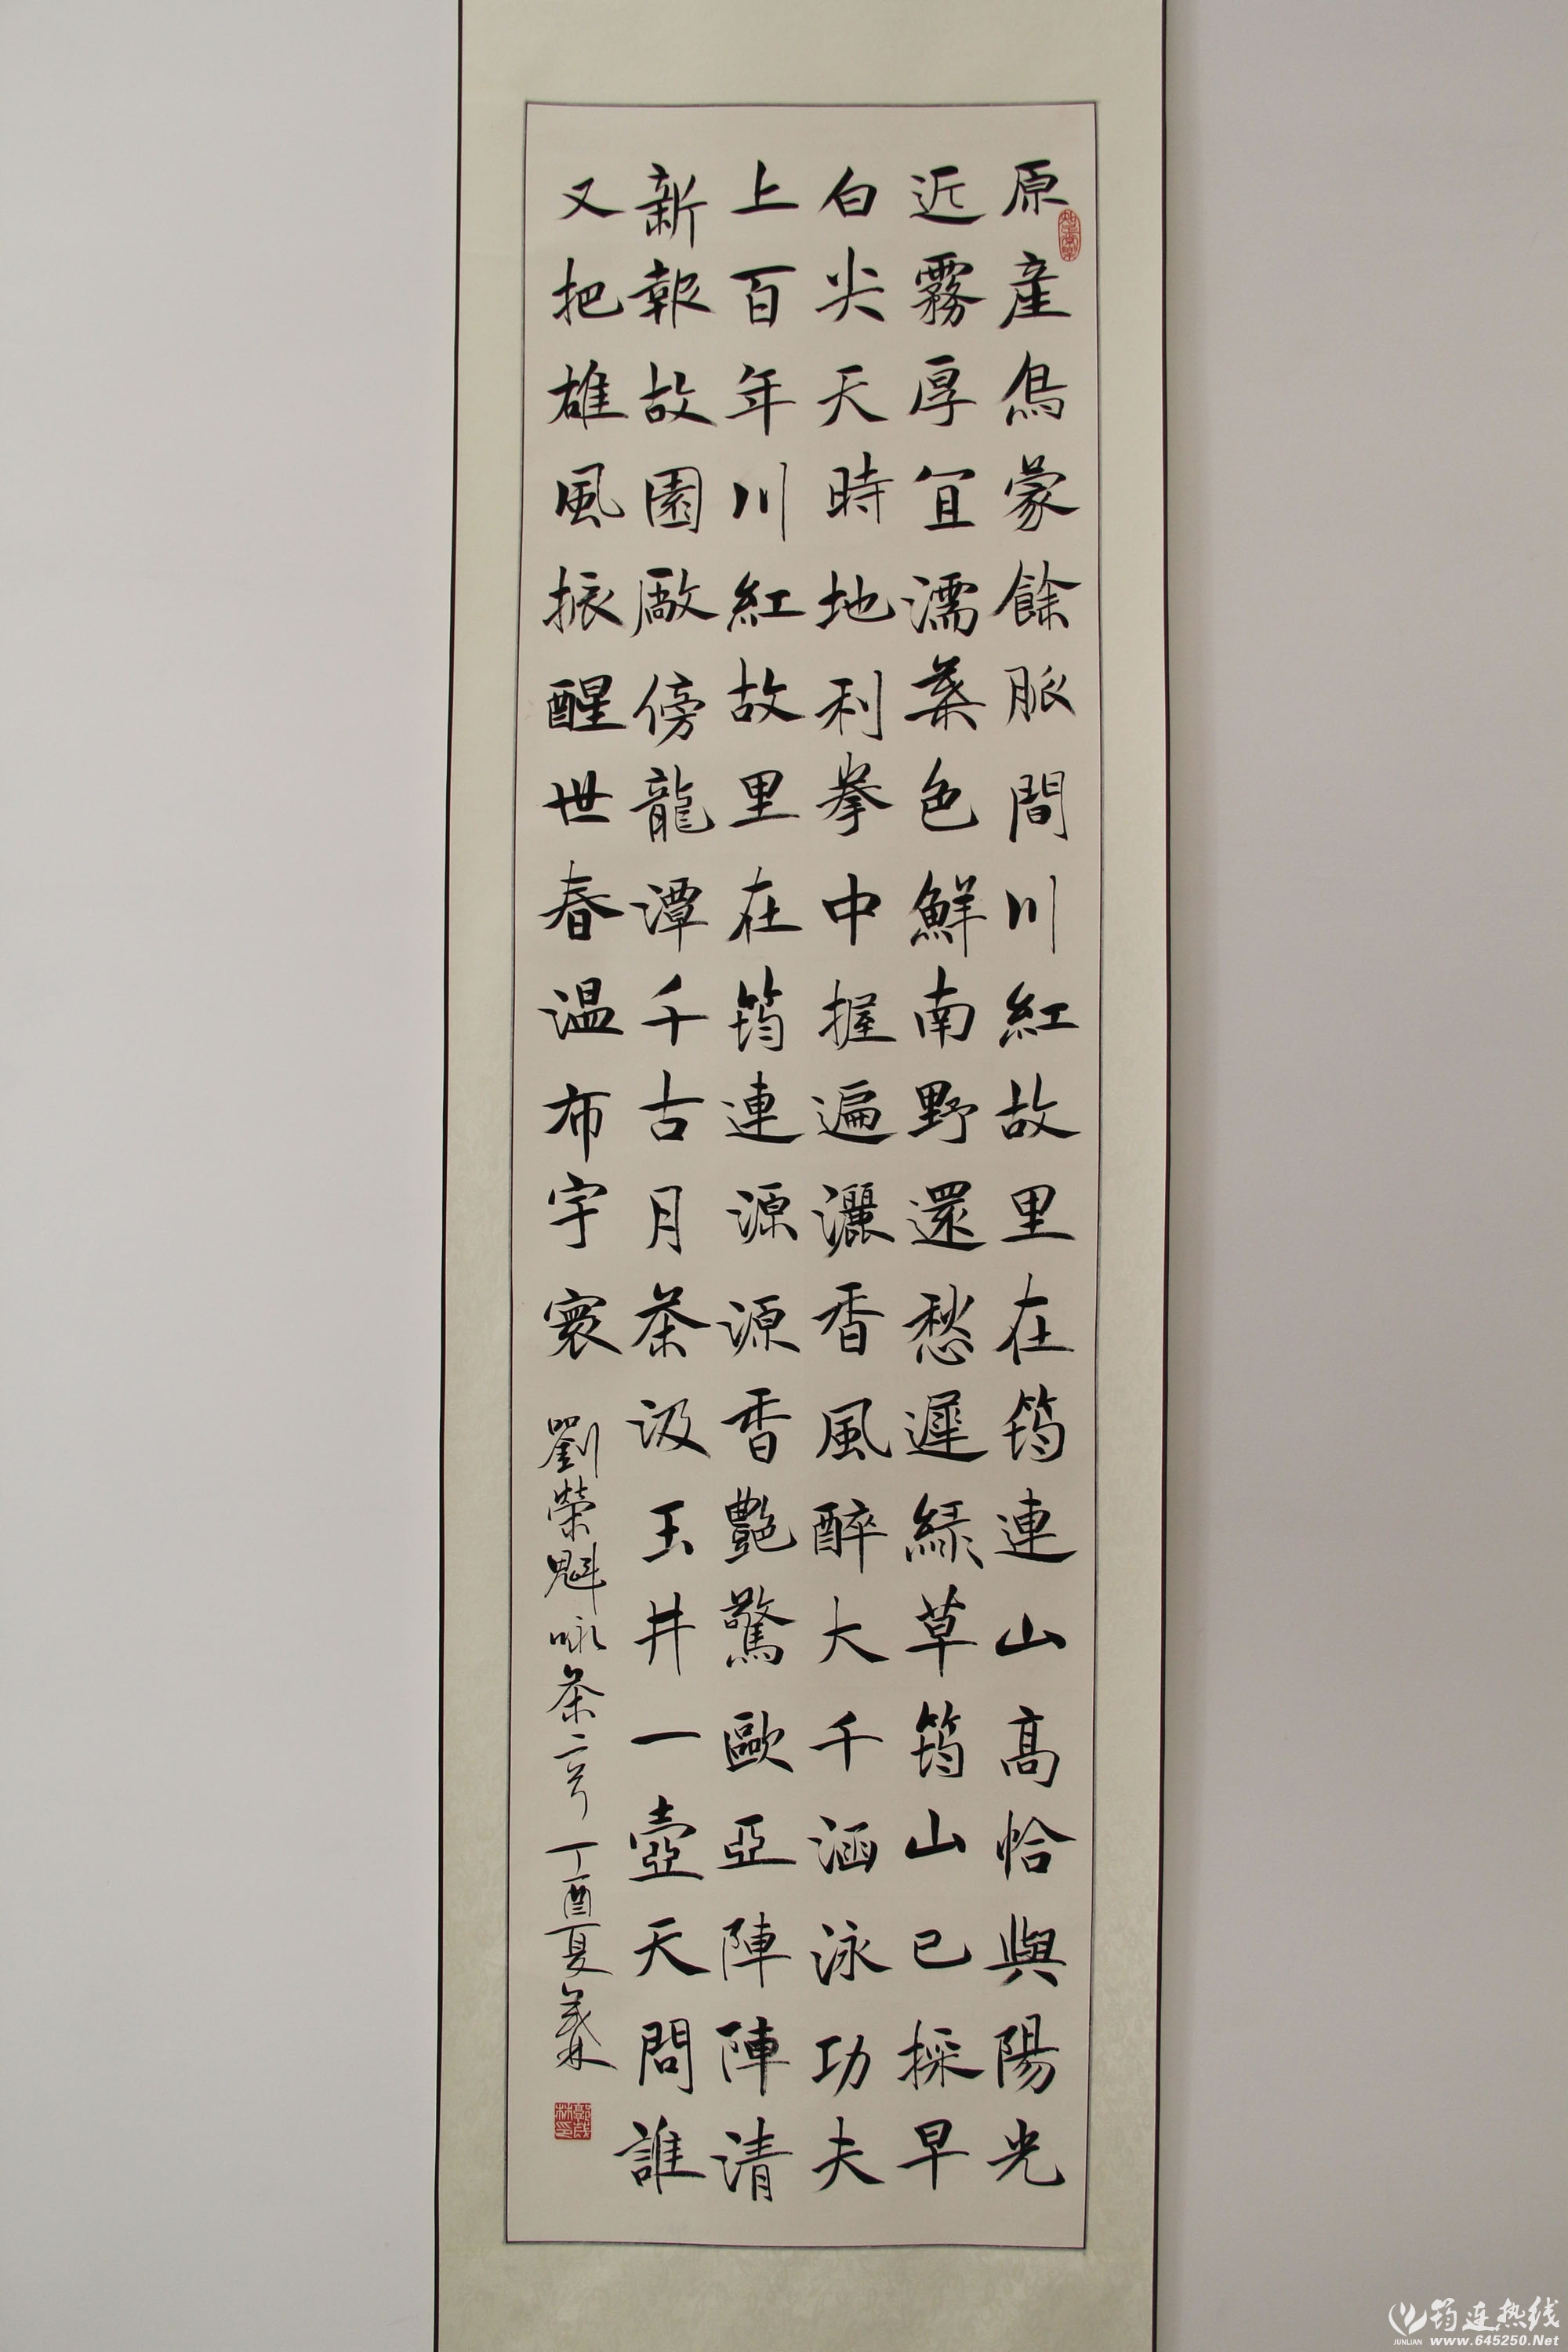 原產烏蒙餘脈間川紅故里在筠連山高恰與陽光
近霧厚宜濡葉色鮮南野還愁遲綠草筠山已採早
白尖天時地利拳中握遍灑香風醉大千涵泳功夫
上百年川紅故里在筠連源源香艷驚歐亞陣陣清
新報故園廠傍龍潭千古月茶汲玉井一壺天問誰
又把雄風振醒世春溫布宇寰
劉榮魁咏茶二首丁酉夏義林
筠连热线
JUNLIAN www.645250.Net